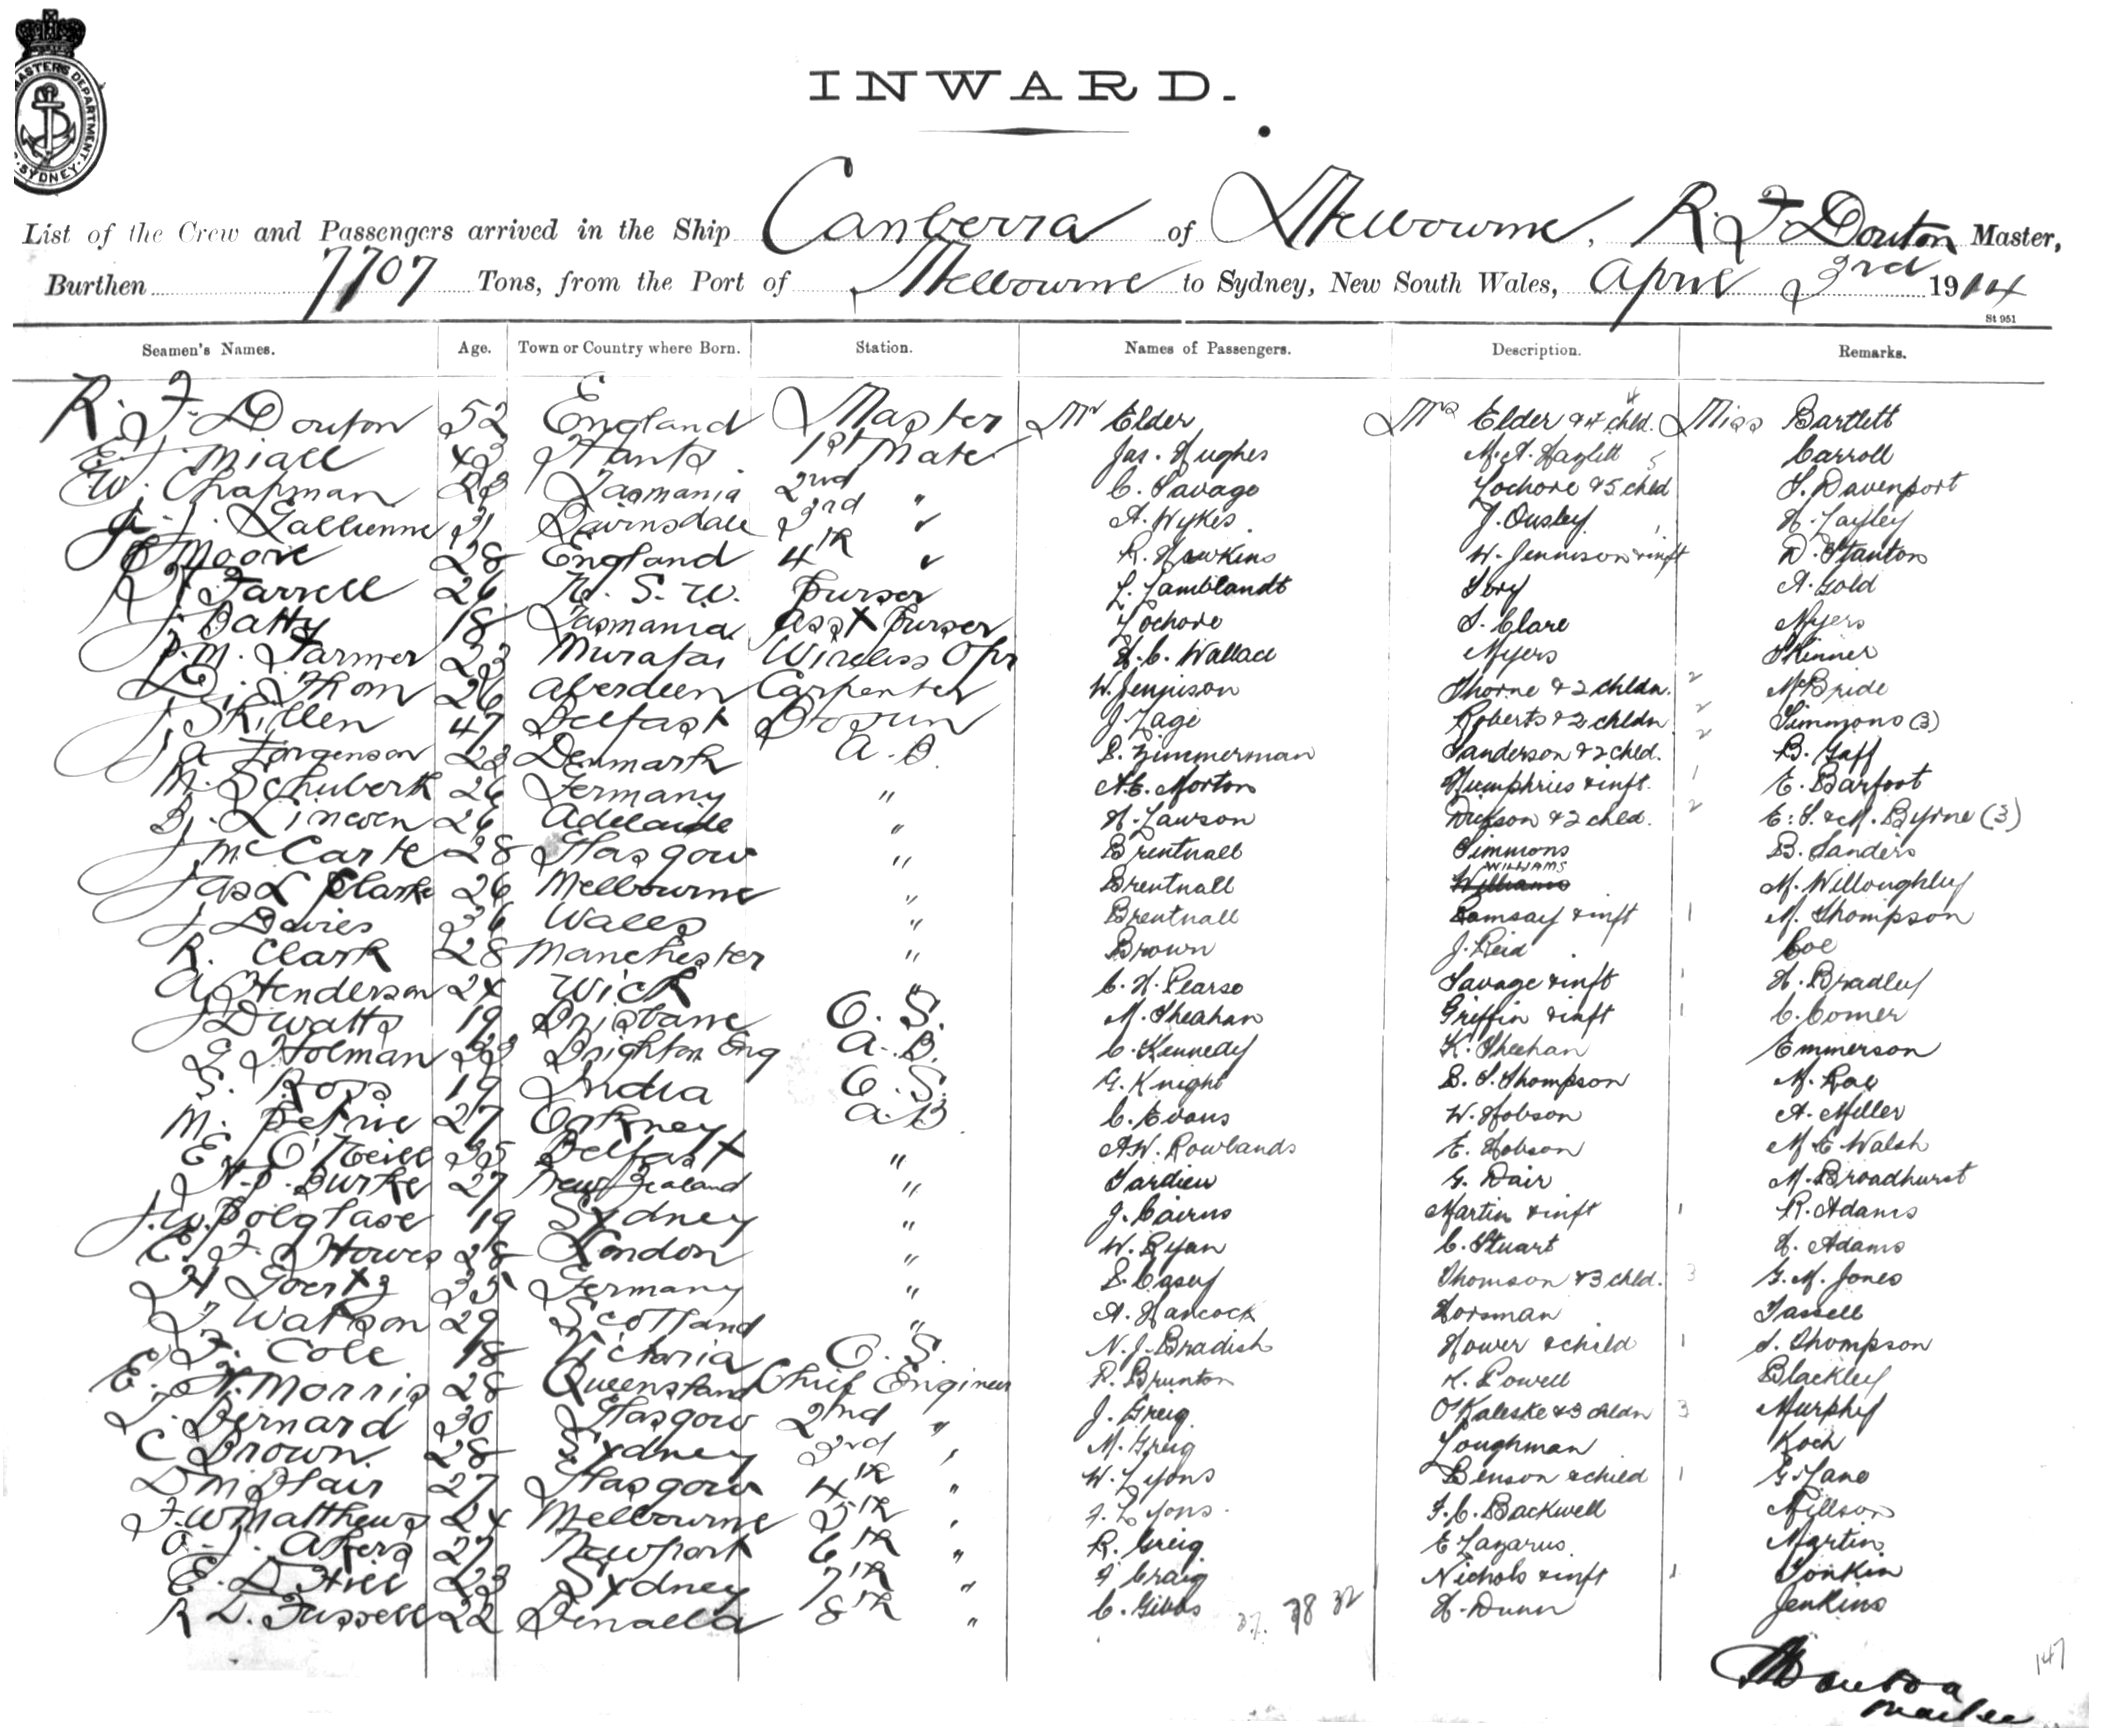 MASTERS DEPARTMENT. SYDNEY.
INWARD.
List of the Crew and Passengers arrived in the Ship Canberra of Melbourne, R. F. Douton Master,
Burthen 7707 Tons, from the Port of Melbourne to Sydney, New South Wales, April 3rd 1914
St 951
Seamen's Names. Age. Town or Country where Born. Station. Names of Passengers. Description. Remarks.
R. F. Douton 52 England Master Mr Elder Mrs Elder & 4 chld. 4 Miss Bartlett
E. J. Miall 43 Hants. 1st Mate Jas. Hughes M. A. Hazlitt Carroll
W. Chapman 28 Tasmania 2nd " C. Savage Lochore & 5 chld 5 S. Davenport
J. Gallienne 31 Bairnsdale 3rd " A. Wykes. J. Ousley H. Layley
Moore 28 England 4th " R. Hawkins W. Jennison & inft 1 D. Stanton
R. Farrell 26 N. S. W. Purser L. Lamblandt Ivey A. Gold
J. Batty 18 Tasmania Asst Purser Lochore S. Clare Myers
P. M. Farmer 23 Wireless Opr H. C. Wallace Myers Skinner
D. Thom 26 Aberdeen Carpenter W. Jennison Thorne & 2 chldn. 2 McBride
J. Skillen 47 Belfast Bosun J. Page Roberts & 2 chldn 2 Simmons (3)
A Jorgenson 23 Denmark A. B. S. Zimmerman Sanderson & 2 chld. 2 B. Gaff
M. Schubert 26 Germany " A. E. Morton Humphries & inft. 1 E. Barfoot
B. J. Lincoln 26 Adelaide " H. Lawson Dickson & 2 chld. 2 E. S. & M. Byrne (3)
J McCarte 28 Glasgow " Brentnall Simmons B. Sanders
WILLIAMS
Jas L Clarke 26 Melbourne " Brentnall Williams M. Willoughby
J Davies 36 Wales " Brentnall Ramsay & inft 1 M. Thompson
R. Clark 28 Manchester " Brown J. Reid Coe
A Henderson 24 Wick " C. H. Pearse Savage & inft 1 H. Bradley
J D Watts 19 Brisbane O. S. M. Sheahan Griffin & inft 1 C. Comer
G Holman 33 Brighton Eng A. B. C. Kennedy K. Sheehan Emmerson
S. Ross 19 India O. S. G. Knight S. S. Thompson M. Rae
M. Petrie 27 Orkney A. B. C. Evans W. Hobson A. Miller
E O'Neill 35 Belfast " A. W. Rowlands E. Hobson M E Walsh
H. P. Burke 27 New Zealand " Tardieu G. Dair M. Broadhurst
J. W. Polglase 19 Sydney " J. Cairns Martin & inft 1 R. Adams
E. F. Howes 28 London " W. Ryan C. Stuart H. Adams
H Goertz 35 Germany " S. Casey Thomson & 3 chld. 3 G. M. Jones
J Watson 29 Scotland " A. Hancock Horsman Tassell
F. Cole 18 Victoria O. S. N. J. Bradish Hower & child 1 S. Thompson
E. N. Morris 28 Queensland Chief Engineer R. Brunton K. Powell Blackley
L. Bernard 30 Glasgow 2nd " J. Greig O'Kaleske & 3 chldn 3 Murphy
C Brown. 28 Sydney 3rd " M. Greig Loughman Koch
D M Blair 27 Glasgow 4th " W. Lyons Benson & child 1 G Lane
F. W Matthews 24 Melbourne 5th " J. Lyons. F. C. Backwell Millson
A. J. Akers 27 Newport 6th " R. Greig E Lazarus Martin
E. D Hill 23 Sydney 7th " J Craig Nichols & inft 1 Tonkin
R L. Fussell 22 Benalla 8th " C. Gibbs 37. 38 32 H. Dunn Jenkins
147
Douton
Master